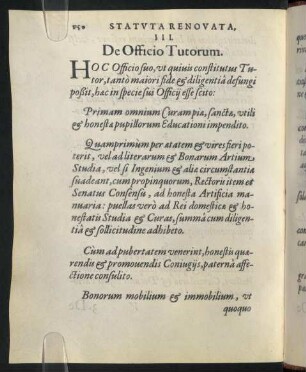 STATVTA RENOVATA,
III.
De Officio Tutorum.
HOC Officio suo, vt quiuis constitutus Tu-
tor, tantò maiori fide & diligentiâ defungi
possit, hac in specie sui Officij esse scito:
Primam omnium Curam pia, sancta, vtili
& honesta pupillorum Educationi impendito.
Quamprimùm per ætatem & vires fieri po-
terit, vel ad literarum & Bonarum Artium
Studia, vel si Ingenium & alia circumstantia
suadeant, cum propinquorum, Rectoris item &
Senatus Consensu, ad honesta Artificia ma-
nuaria: puellas verò ad Rei domesticæ & ho-
nestatis Studia & Curas, summâ cum diligen-
tiâ & sollicitudine adhibeto.
Cùm ad pubertatem venerint, honestis quæ-
rendis & promouendis Coniugijs, paternâ affe-
ctione consulito.
Bonorum mobilium & immobilium, vt
quoquo